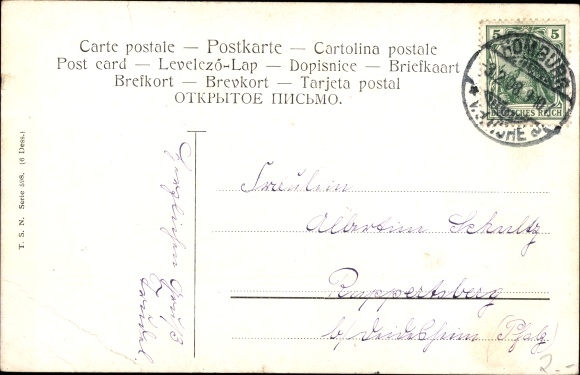 Carte postale — Postkarte — Cartolina postale
Post card — Levelező-Lap — Dopisnice — Briefkaart
Brefkort — Brevkort — Tarjeta postal
ОТКРЫТОЕ ПИСЬМО.
5 5
HOMBURG
DEUTSCHES REICH
v. d. HÖHE
T. S. N. Serie 598. (6 Dess.)
Herzlichen Gruß
Fräulein
Albertine Schultz
Ruppertsberg
b/ Deidesheim (Pfalz)
2.-